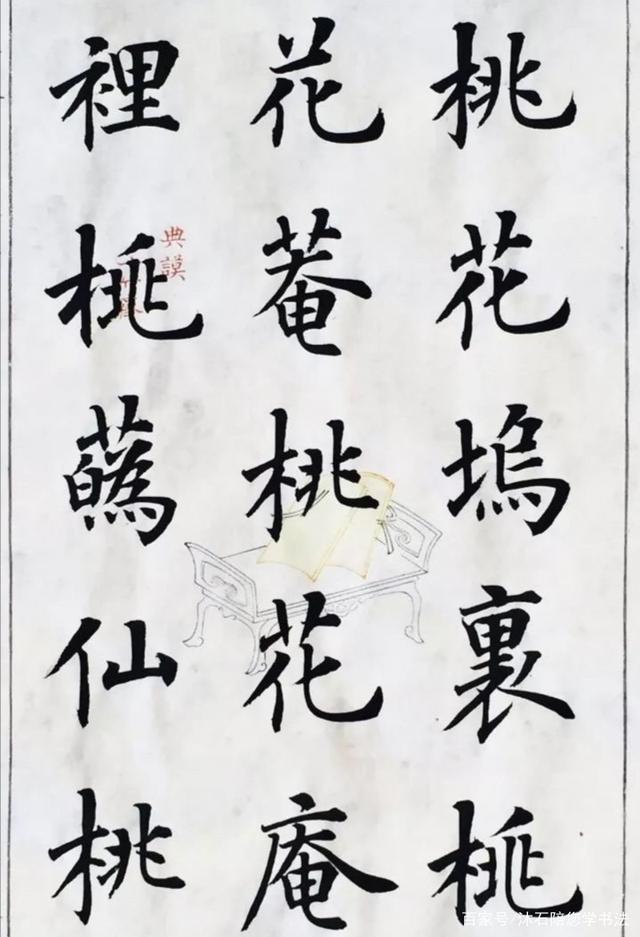 桃花塢裏桃
花菴桃花庵
裡桃蘤仙桃
典謨
百家号/沐石陪您学书法